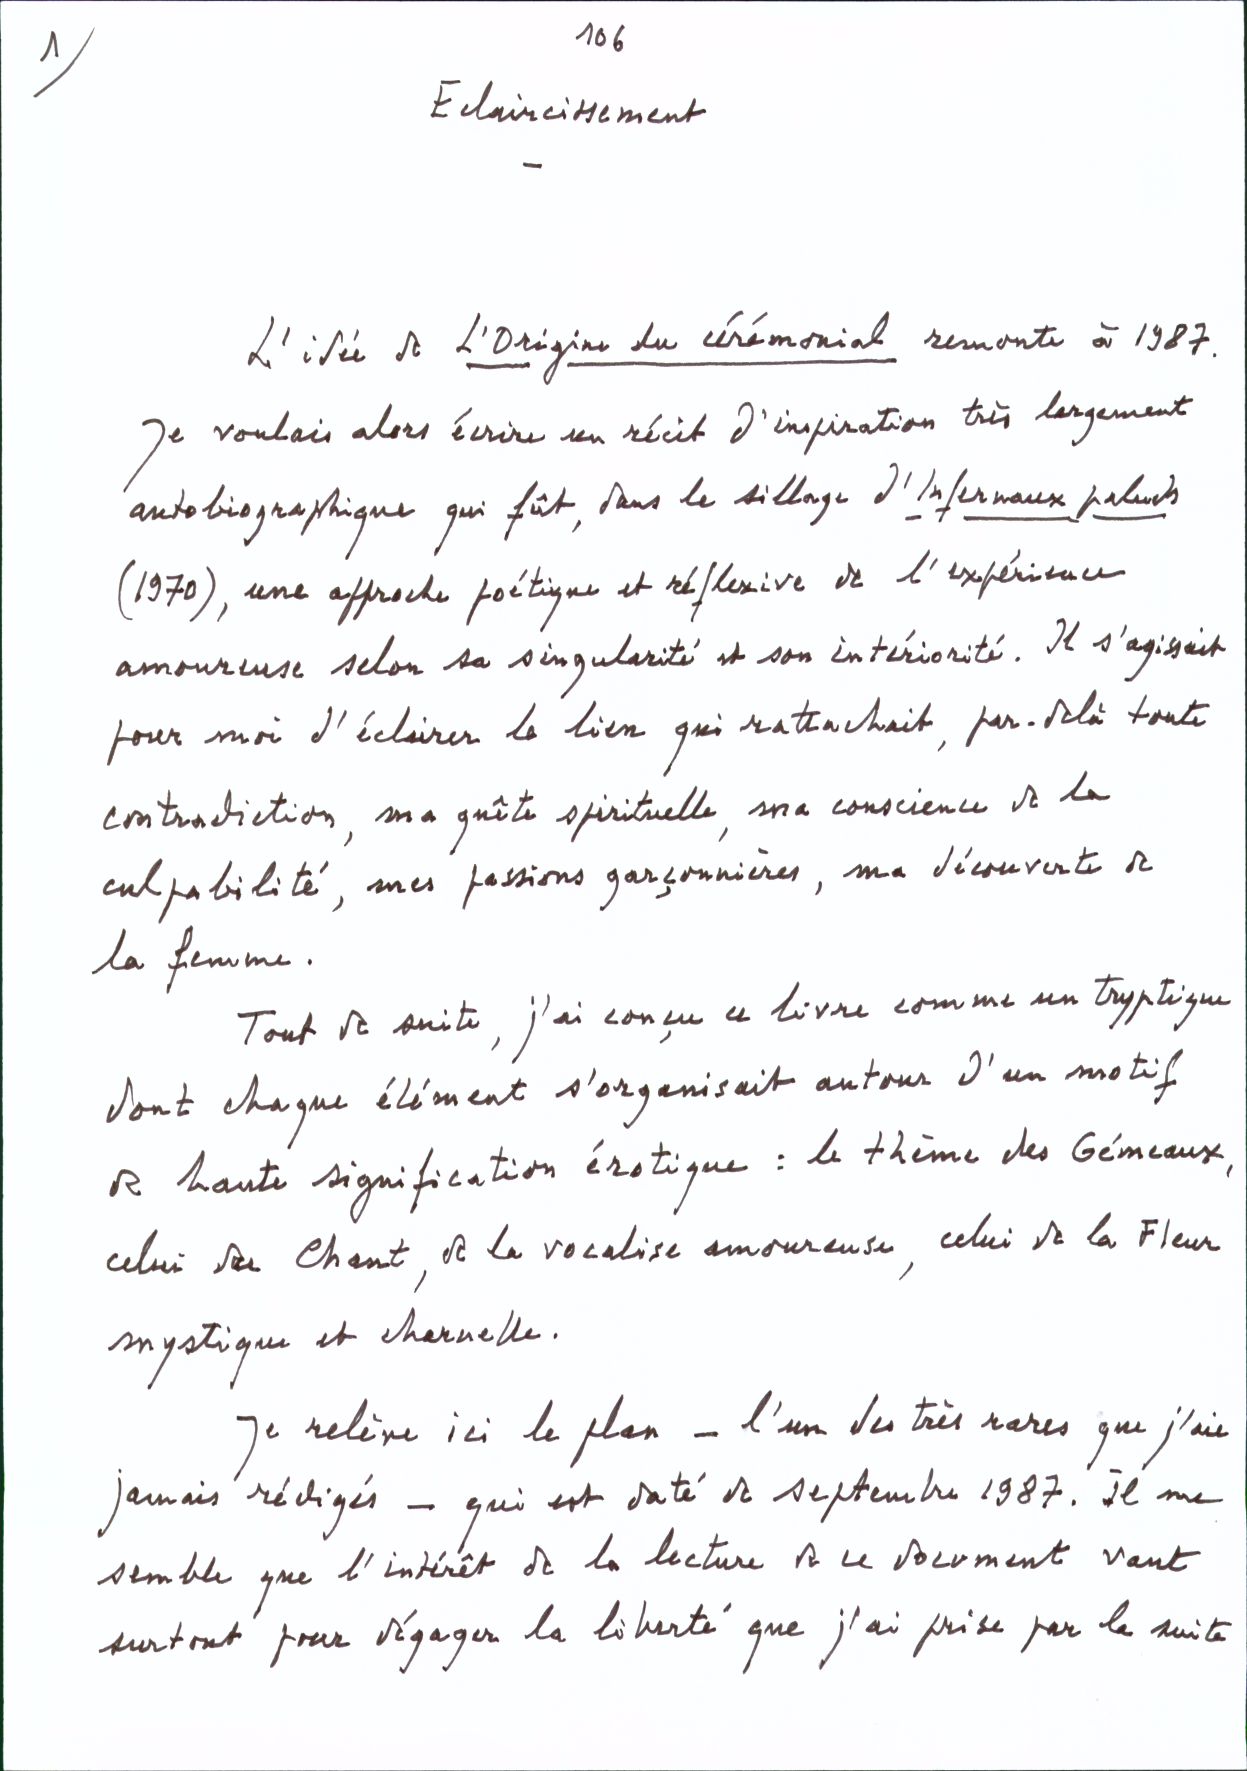 1/
106
Eclaircissement
–
L'idée de L'Origine du cérémonial remonte à 1987.
Je voulais alors écrire un récit d'inspiration très largement
autobiographique qui fût, dans le sillage d'Infernaux paluds
(1970), une approche poétique et réflexive de l'expérience
amoureuse selon sa singularité et son intériorité. Il s'agissait
pour moi d'éclairer le lien qui rattachait, par-delà toute
contradiction, ma quête spirituelle, ma conscience de la
culpabilité, mes passions garçonnières, ma découverte de
la femme.
Tout de suite, j'ai conçu ce livre comme un tryptique
dont chaque élément s'organisait autour d'un motif
de haute signification érotique : le thème des Gémeaux,
celui du Chant, de la vocalise amoureuse, celui de la Fleur
mystique et charnelle.
Je relève ici le plan – l'un des très rares que j'aie
jamais rédigés – qui est daté de septembre 1987. Il me
semble que l'intérêt de la lecture de ce document vaut
surtout pour dégager la liberté que j'ai prise par la suite